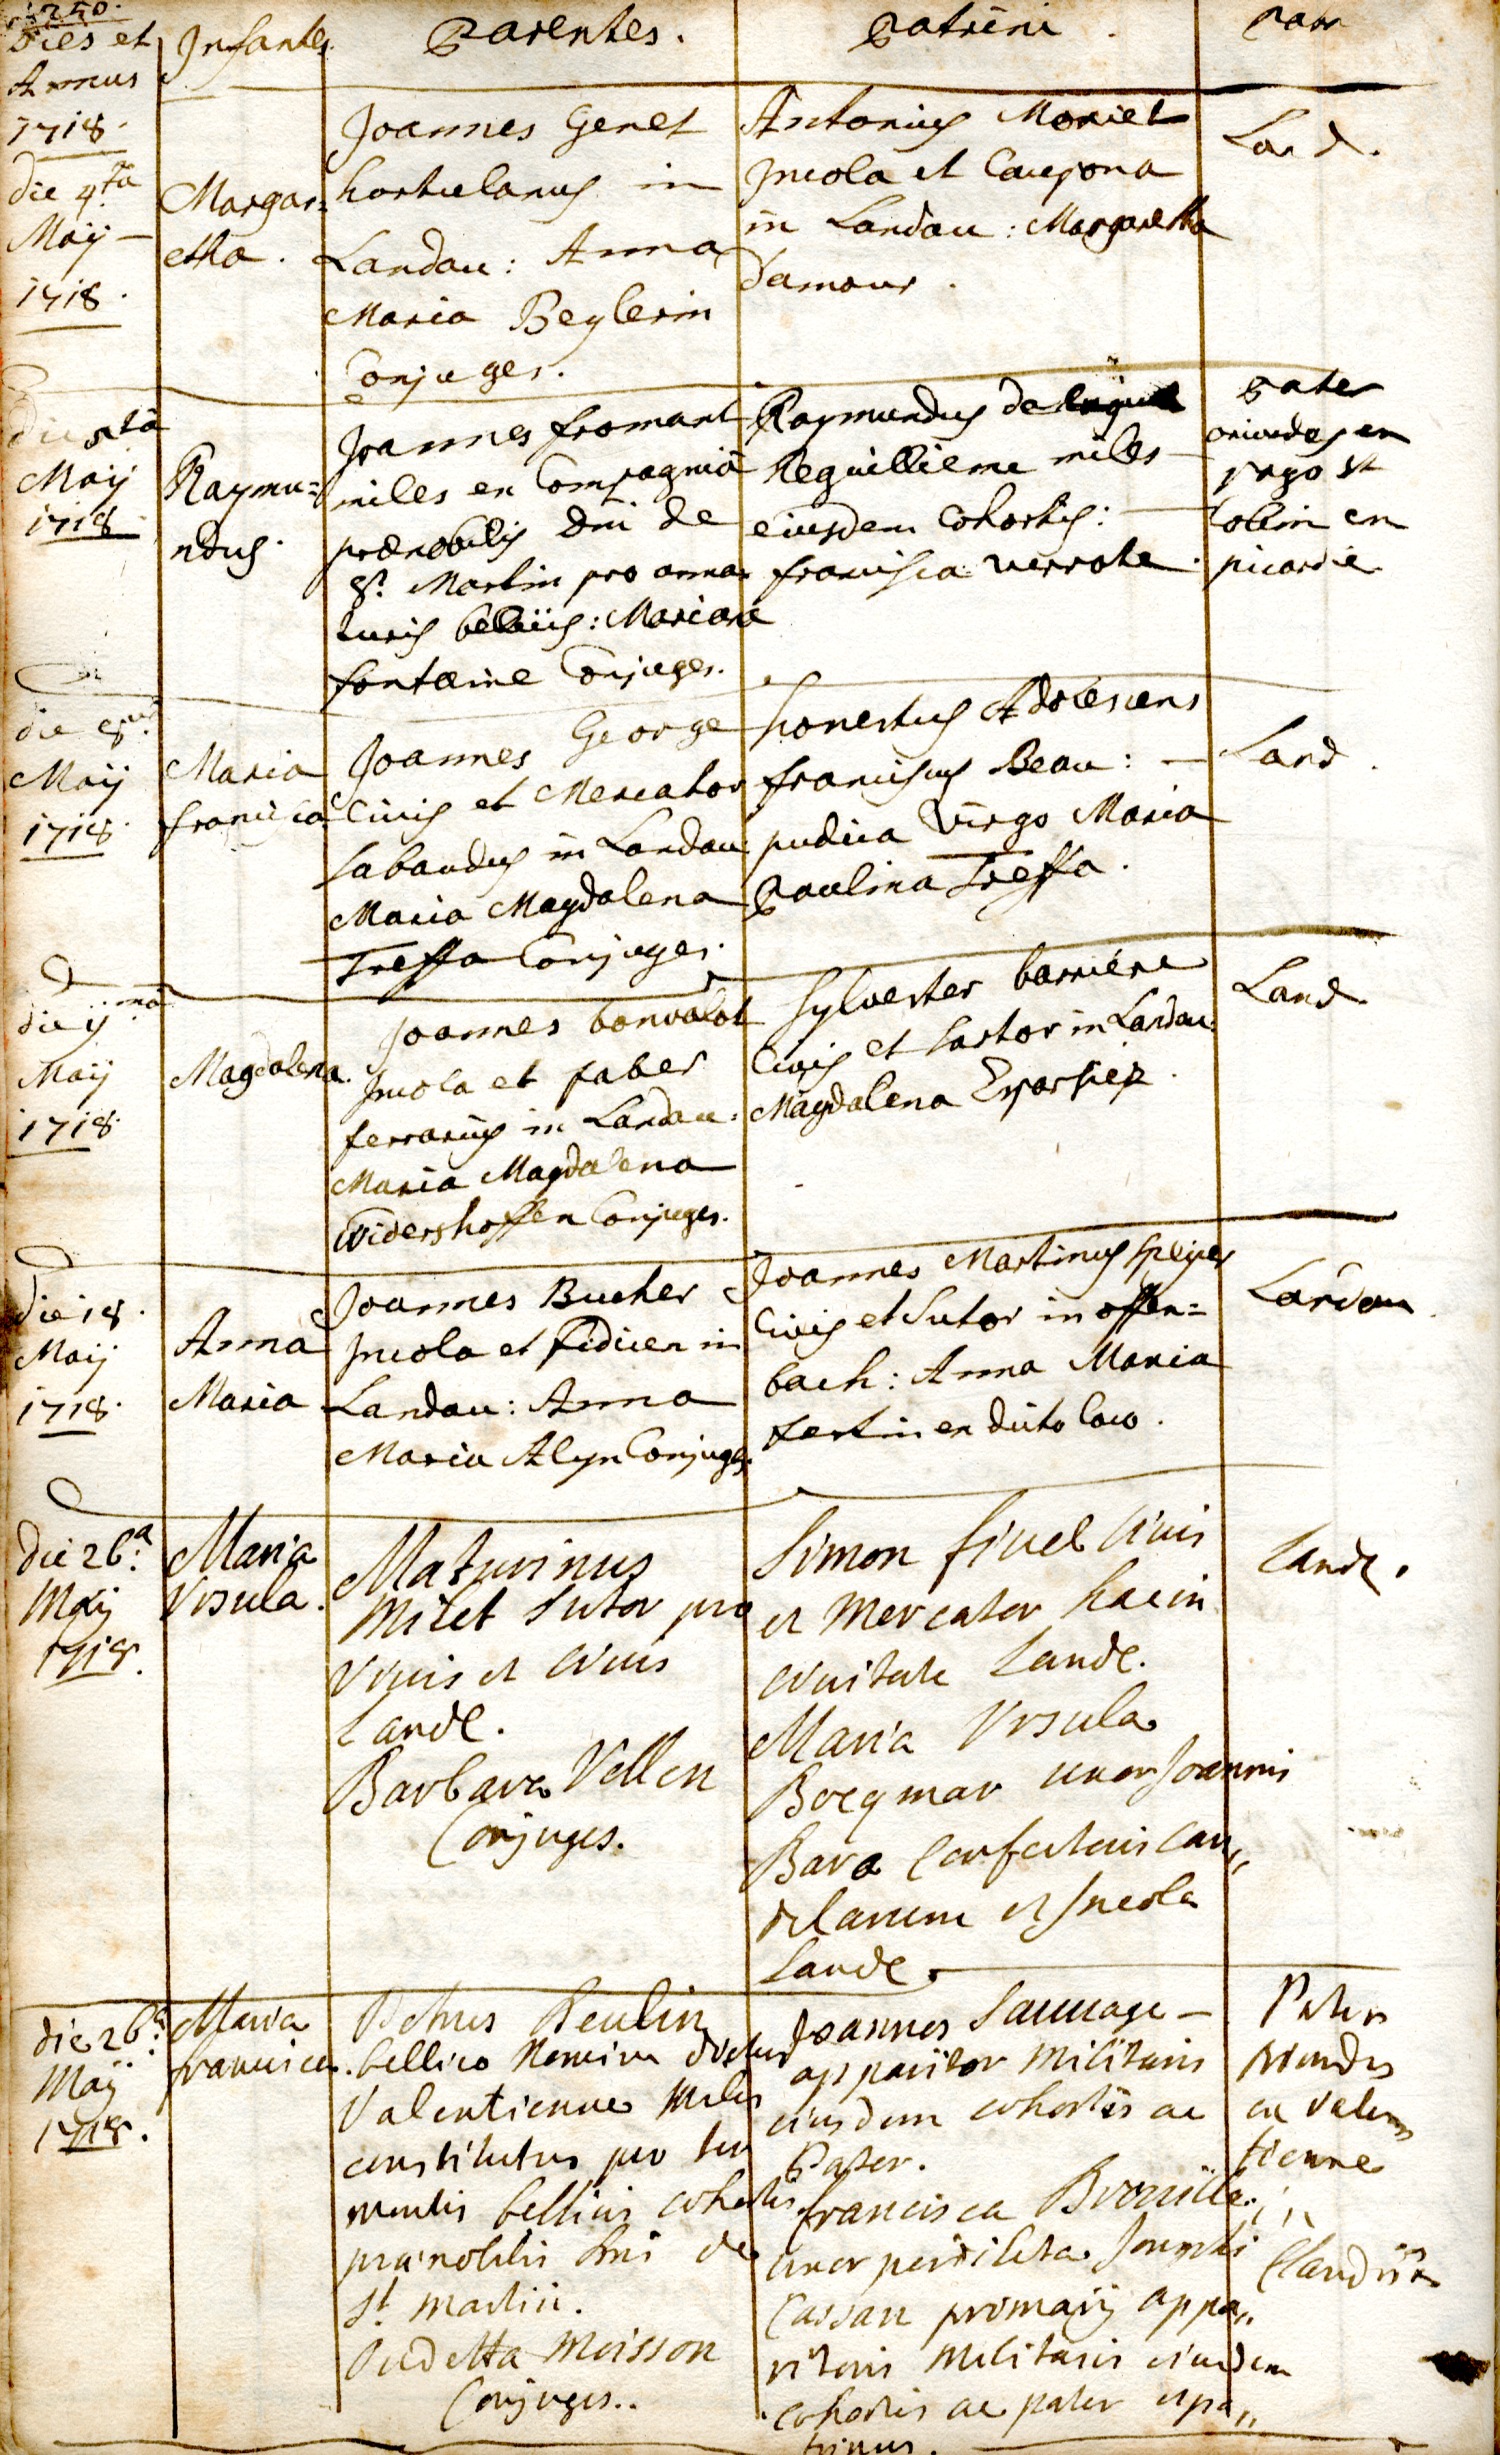 Dies et
Annus
1718.
Infantes
Parentes.
Patrini.
die 4ta
Maij
1718.
Margar=
etha.
Joannes Genet
hortulanus in
Landau: Anna
Maria Beylerin
Conjuges.
Antonius Moriet
Incola et Caupona
in Landau: Margaretha
d'amour.
Land.
die 5ta
Maij
1718.
Raymu=
ndus.
Joannes fromant
miles en Compagniâ
prænobilis Dni de
St. Martin pro arma
turis bellicis: Mariana
fontaine Conjuges.
Raymundus de
Reguillieme miles
eiusdem Cohortis:
francisca verrote.
Pater
oriundus en
pago St
Cobin en
picardie
die 8va
Maij
1718.
Maria
francisca
Joannes George
Civis et Mercator
Sabaudus in Landau
Maria Magdalena
Treffa Conjuges.
honestus Adolescens
franciscus Beau:
pudica Virgo Maria
Paulina Treffa.
Land.
die
Maij
1718.
Magdalena.
Joannes bonvalot
Incola et faber
ferrarius in Landau:
Maria Magdalena
Widershoffen Conjuges.
Sylvester barriere
Civis et Sartor in Landau:
Magdalena
Land
die 18.
Maij
1718.
Anna
Maria
Joannes Bucher
Incola et fidicen in
Landau: Anna
Maria Alyn Conjuges.
Joannes Martinus speyer
Civis et Sutor in offen=
bach: Anna Maria
fertin en dicto loco.
Landau.
die 26.a
Maij
1718.
Maria
Vrsula.
Maturinus
Milet Sutor pro
Viris et Civis
Land.
Barbara Vellen
Conjuges.
Simon fivel Civis
et Mercator hac in
Civitate Land.
Maria Vrsula
Bocqmar uxor Joannis
Bara Confectoris Can„
delarum et Incola
Land.
Land.
die 26.a
Maij
1718.
Maria
francisca.
Petrus Beulin
bellico Nomine dictus
Valentienne Miles
constitutus pro tor
mentis bellicis cohortis
prænobilis Dni de
St Martin.
Odetta Moisson
Conjuges..
Joannes Sauuage
apparitor Militaris
eiusdem cohortis ac
Pater.
francisca
uxor perdilecta Josephi
Cassan primarij appa„
ritoris Militaris eiusdem
cohortis ac pater et pa„
trinus.
Pater
oriundus
en Valen
tienne